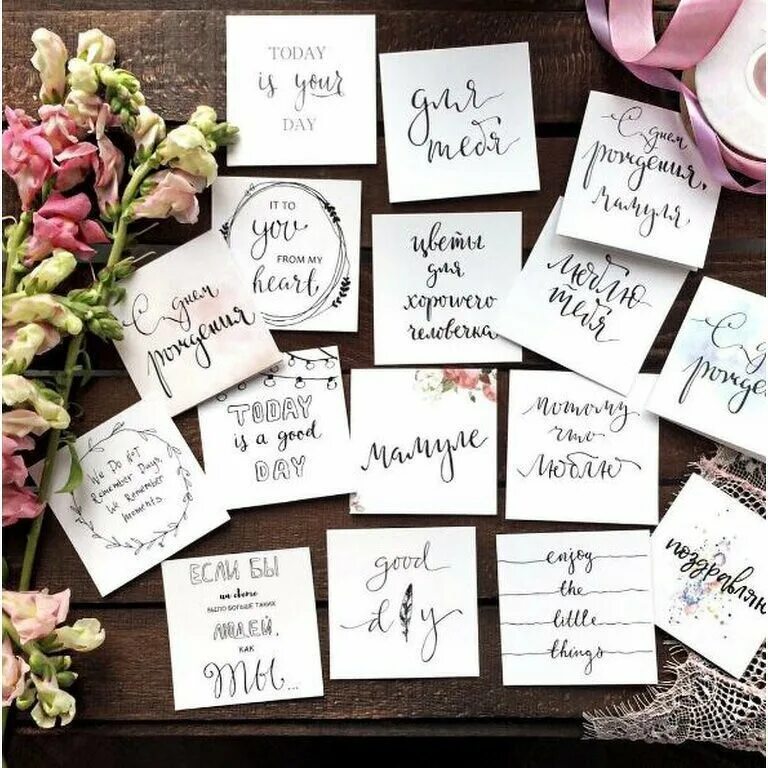 TODAY
is your
DAY
для
тебя
С днем
рождения,
мамуля
IT TO
you
FROM MY
heart,
цветы
для
хорошего
человечка
люблю
тебя
С днем
рождения
С днем
TODAY
is a good
DAY
мамуле
потому
что
люблю
We Do Not
Remember Days,
We Remember
Moments
ЕСЛИ БЫ
на свете
БЫЛО БОЛЬШЕ ТАКИХ
ЛЮДЕЙ,
КАК
ТЫ...
good
day
enjoy
the
little
things
поздравляю